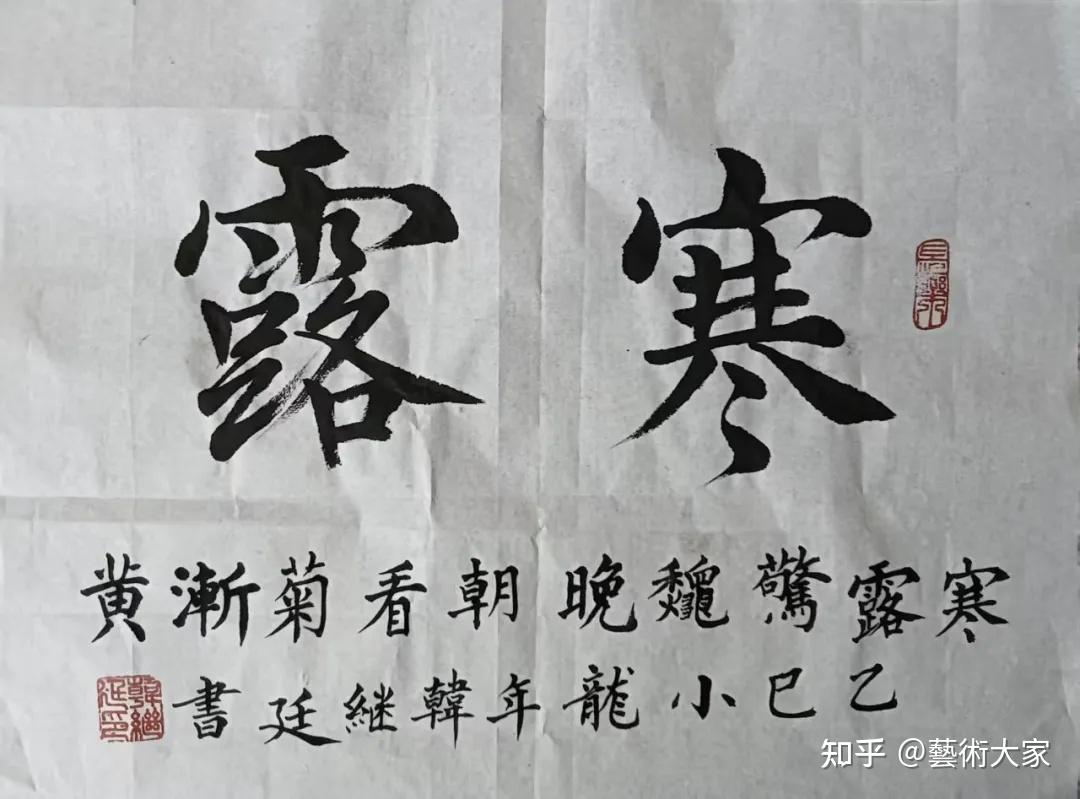 寒露
寒露驚龝晚朝看菊漸黄
乙巳小龍年韓継廷書
知乎 @藝術大家